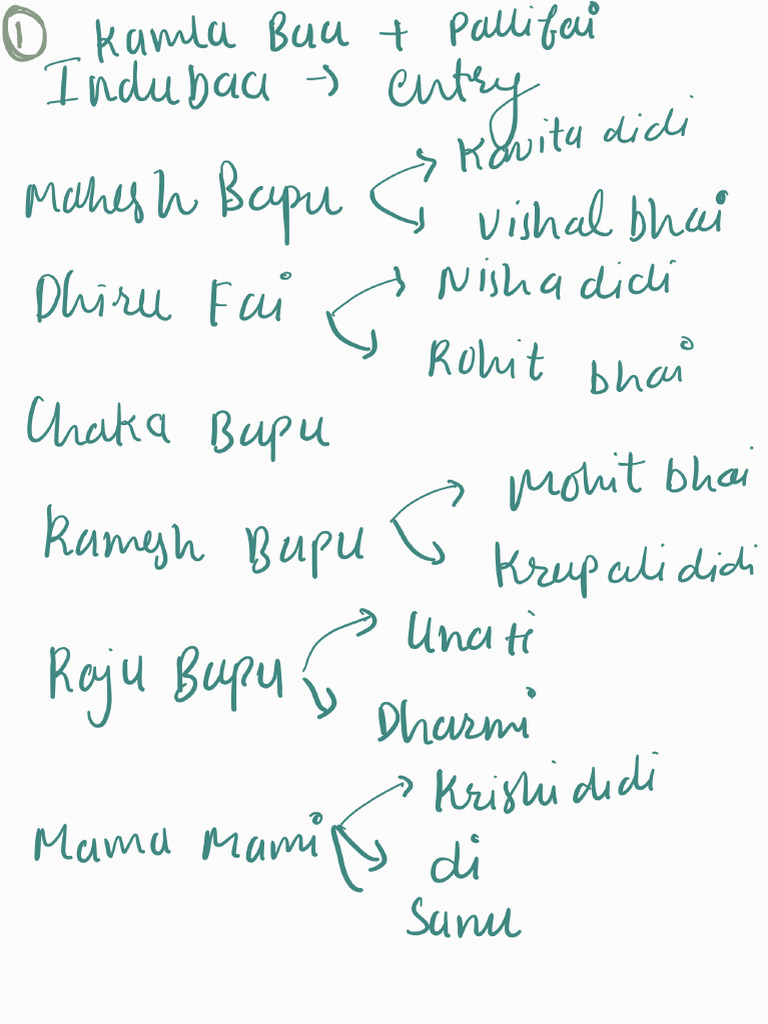 ① Kamla Baa + Pallifai
Indubaa → entry
Mahesh Bapu
Kavita didi
Vishal bhai
Dhiru Fai
Nisha didi
Rohit bhai
Chaka Bapu
Ramesh Bapu
Mohit bhai
Krupali didi
Raju Bapu
Unati
Dharmi
Mama Mami
Krishi didi
di
Sanu